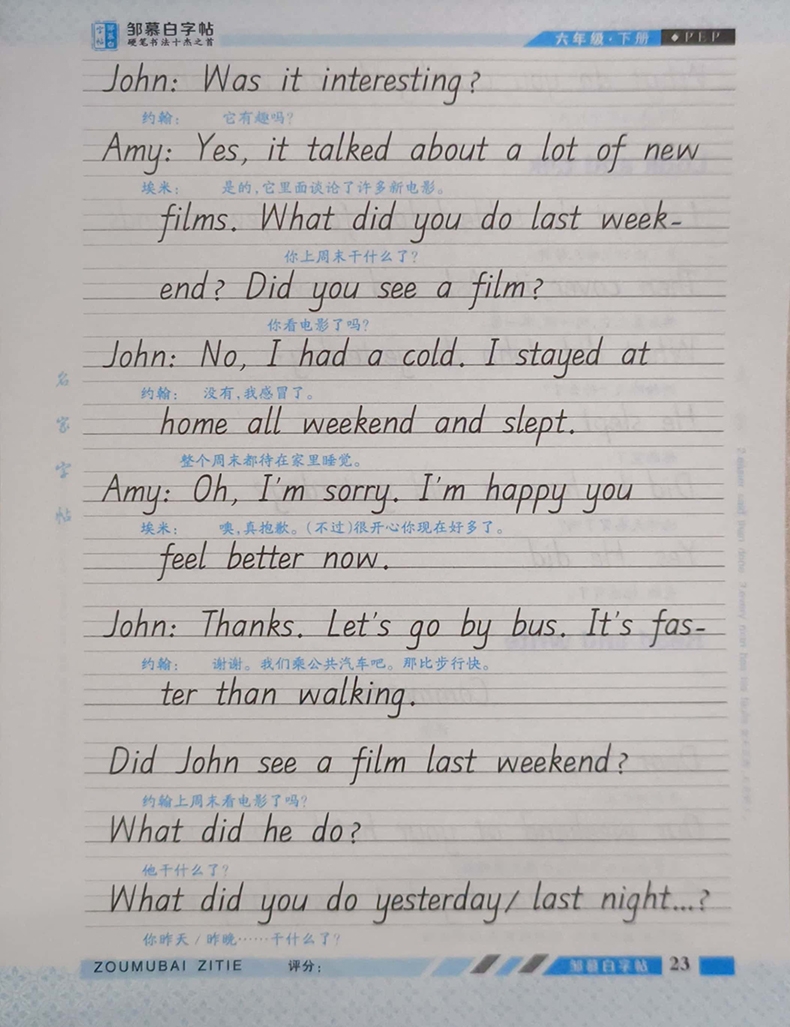 邹慕白字帖
硬笔书法十杰之首
六年级·下册 ◆PEP
John: Was it interesting?
约翰: 它有趣吗?
Amy: Yes, it talked about a lot of new
埃米: 是的,它里面谈论了许多新电影。
films. What did you do last week-
你上周末干什么了?
end? Did you see a film?
你看电影了吗?
John: No, I had a cold. I stayed at
约翰: 没有,我感冒了。
home all weekend and slept.
整个周末都待在家里睡觉。
Amy: Oh, I'm sorry. I'm happy you
埃米: 噢,真抱歉。(不过)很开心你现在好多了。
feel better now.
John: Thanks. Let's go by bus. It's fas-
约翰: 谢谢。我们乘公共汽车吧。那比步行快。
ter than walking.
Did John see a film last weekend?
约翰上周末看电影了吗?
What did he do?
他干什么了?
What did you do yesterday/ last night...?
你昨天 / 昨晚……干什么了?
名家字帖
ZOUMUBAI ZITIE 评分: 邹慕白字帖 23